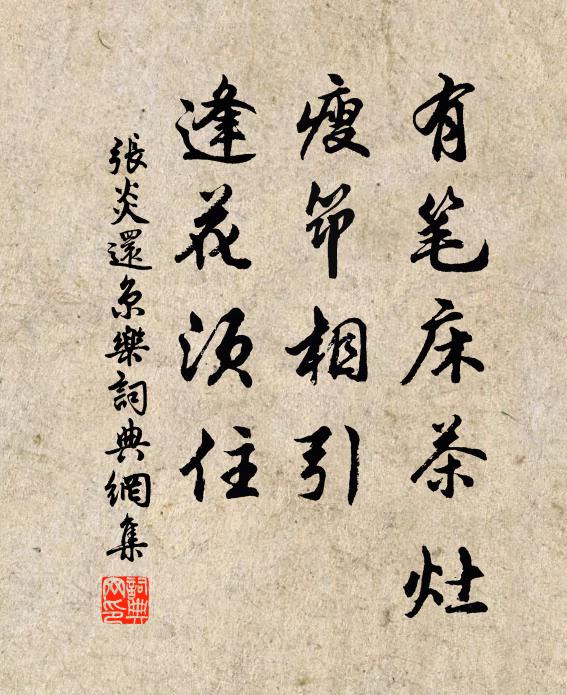 有笔床茶灶
瘦筇相引
逢花须住
張炎還京樂詞典網集
詞典網印